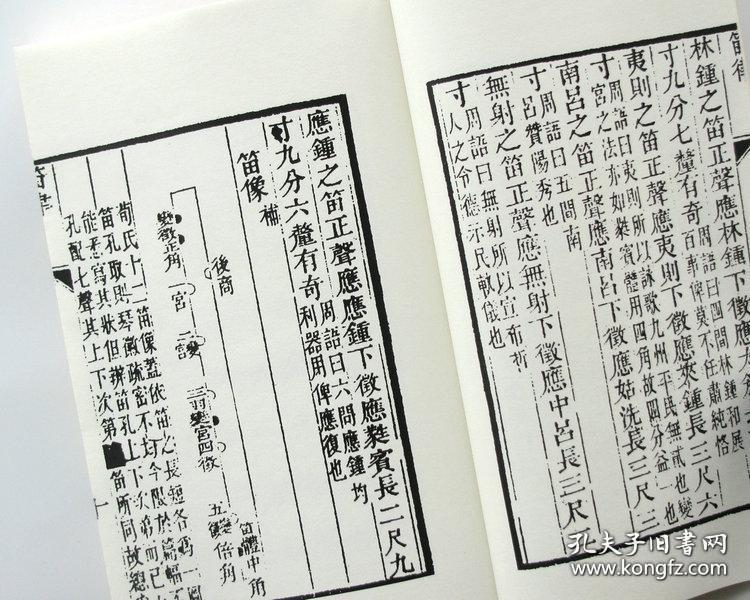 笛律
林鍾之笛正聲應林鍾下徵應大
寸九分七釐有奇周語曰四間林鍾和展百事俾莫不任肅純恪
夷則之笛正聲應夷則下徵應夾鍾長三尺六
寸周語曰夷則所以詠歌九州平民無貳也變宮之法亦如蕤賓體用四角故四分益一也
南呂之笛正聲應南呂下徵應姑洗長三尺三
寸周語曰五間南呂贊陽秀也
無射之笛正聲應無射下徵應中呂長三尺
寸周語曰無射所以宣布哲人之令德示民軌儀也
應鍾之笛正聲應應鍾下徵應蕤賓長二尺九
寸九分六釐有奇周語曰六間應鍾均利器用俾應復也
笛像補
笛體中角
後商
變徵正角
一宮
二變
三羽變宮四徵
五變倍角
荀氏十二笛像蓋依笛之長短各爲一圖
笛孔取則琴徽疏密不均今限於篇幅不
能悉寫其狀但辨笛孔上下次第而已
孔配七聲其上下次第
笛所同故總
孔夫子旧书网
www.kongfz.com